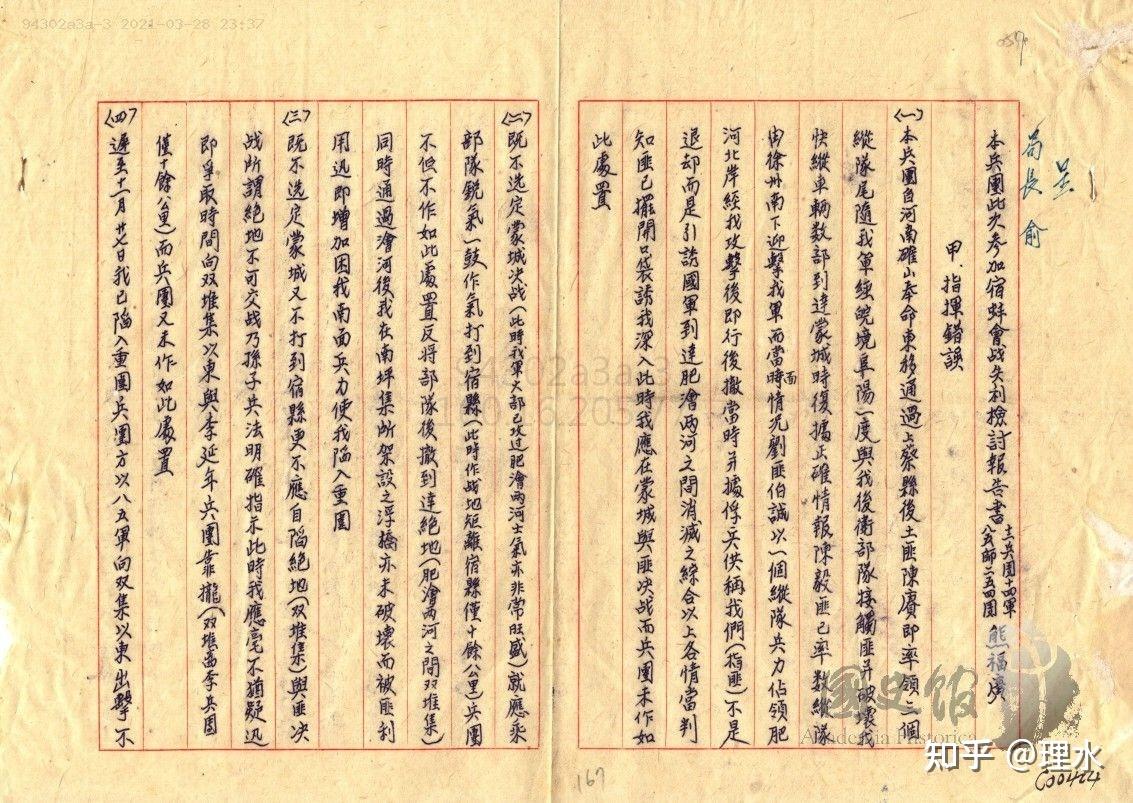 94302a3a-3 2021-03-28 23:37
057
呈
局長 俞
本兵團此次參加宿蚌會战失利檢討報告書 十二兵團十四軍八五師二五四團 熊福廣
甲、指揮錯誤
(一)本兵團自河南確山奉命東移通過上蔡縣後土匪陳賡即率領一個
縱隊尾隨我軍經皖境阜陽一度與我後衛部隊接觸匪並破壞我
快縱車輛数部到達蒙城時復據正確情報陳毅匪已率数縱隊
由徐州南下迎擊我軍而當時面情况劉匪伯誠以一個縱隊兵力佔領肥
河北岸經我攻擊後即行後撤當時並據俘兵供稱我們(指匪)不是
退却而是引誘國軍到達肥澮两河之間消滅之綜合以上各情當判
知匪已擺開口袋誘我深入此時我應在蒙城與匪决战而兵團未作如
此處置
(二)既不选定蒙城决战(此時我軍大部已攻过肥澮两河士氣亦非常旺盛)就應乘
部隊銳氣一鼓作氣打到宿縣(此時作战地距離宿縣僅十餘公里)兵團
不但不作如此處置反將部隊後撤到達絕地(肥澮两河之間双堆集)
同時通過澮河後我在南坪集所架設之浮橋亦未破壞而被匪利
用迅即增加困我南面兵力使我陷入重圍
(三)既不选定蒙城又不打到宿縣更不應自陷絕地(双堆集)與匪决
战所謂絕地不可交战乃孫子兵法明確指示此時我應毫不猶疑迅
即爭取時間向双堆集以東與李延年兵團靠攏(双堆集離李兵團
僅十餘公里)而兵團又未作如此處置
(四)遲至十一月廿七日我已陷入重圍兵團方以八五軍向双集以東出擊不
94302a3a-3
國史館
Academia Historica
167
知乎 @理水